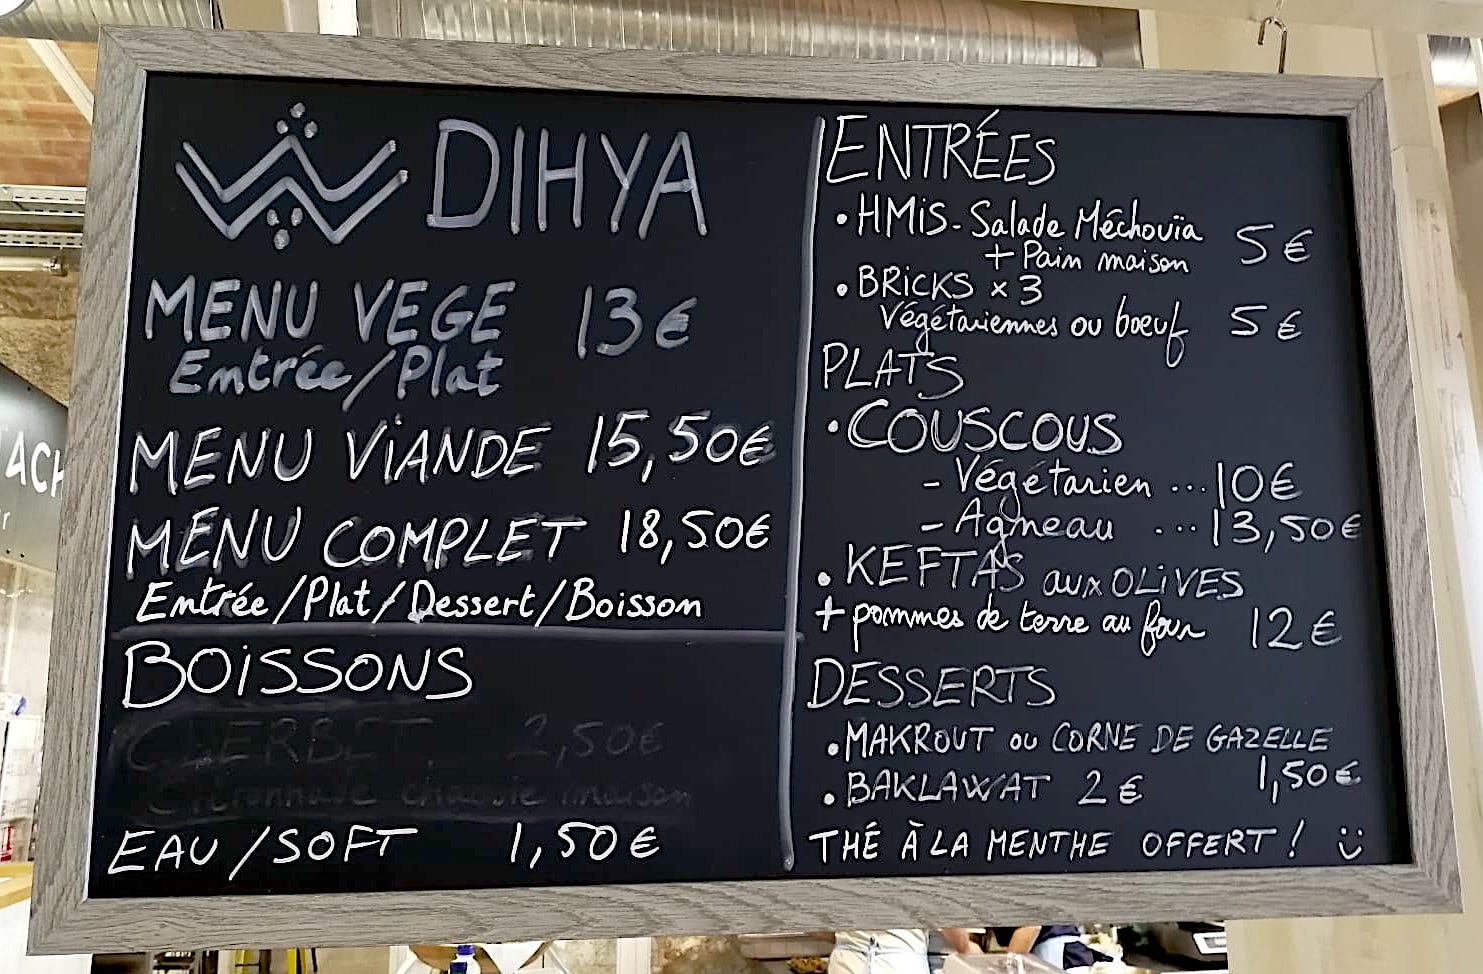 DIHYA
MENU VEGE 13€
Entrée/Plat
MENU ViANDE 15,50€
MENU COMPLET 18,50€
Entrée/Plat/Dessert/Boisson
BOiSSONS
CHERBET 2,50€
Citronnade chaouie maison
EAU/SOFT 1,50€
ENTRÉES
• HMiS - Salade Méchouïa 5€
+ Pain maison
• BRiCKS × 3
Végétariennes ou bœuf 5€
PLATS
• COUSCOUS
- Végétarien ... 10€
- Agneau ... 13,50€
• KEFTAS aux OLiVES
+ pommes de terre au four 12€
DESSERTS
• MAKROUT ou CORNE DE GAZELLE
1,50€
• BAKLAWAT 2€
THÉ À LA MENTHE OFFERT ! :)
TACH
r